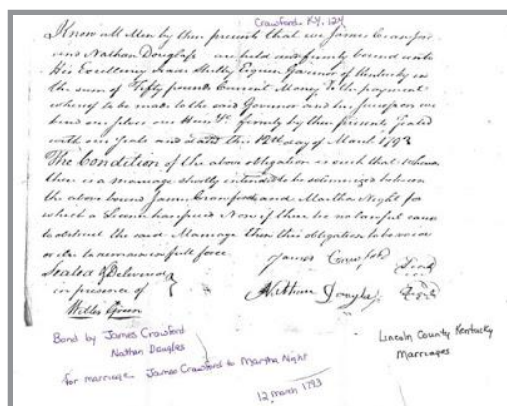 Crawford. KY. 124
Know all Men by these presents that we James Crawford
and Nathan Douglass are held and firmly bound unto
His Excellency Isaac Shelby Esquire Governor of Kentucky in
the sum of Fifty pounds Current Money To the payment
whereof to be made to the said Governor and his Successors we
bind our selves our Heirs &c. firmly by these presents Sealed
with our Seals and dated this 12th day of March 1793
The Condition of the above obligation is such that whereas
there is a marriage shortly intended to be solemnized between
the above bound James Crawford and Martha Night for
which a License has issued Now if there be no lawful cause
to obstruct the said Marriage then this obligation to be void
or else to remain in full force
Sealed & Delivered
in presence of
Willis Green
James Crawford
Nathan Douglas
Bond by James Crawford
Nathan Douglas
for marriage James Crawford to Martha Night
12 March 1793
Lincoln County Kentucky
Marriages